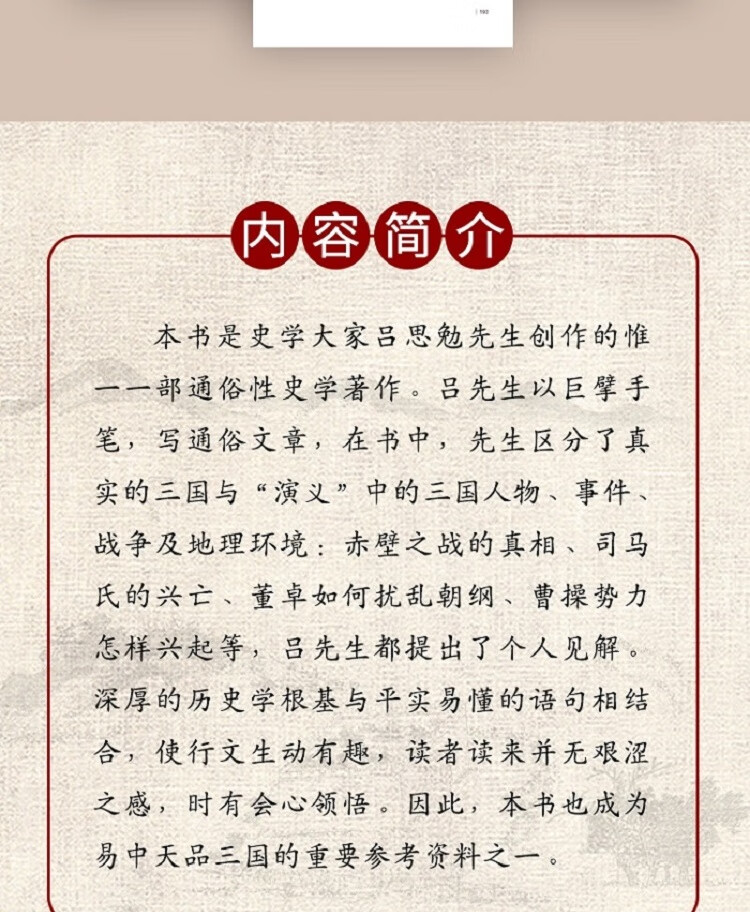 内容简介
本书是史学大家吕思勉先生创作的惟
一一部通俗性史学著作。吕先生以巨擘手
笔，写通俗文章，在书中，先生区分了真
实的三国与“演义”中的三国人物、事件、
战争及地理环境：赤壁之战的真相、司马
氏的兴亡、董卓如何扰乱朝纲、曹操势力
怎样兴起等，吕先生都提出了个人见解。
深厚的历史学根基与平实易懂的语句相结
合，使行文生动有趣，读者读来并无艰涩
之感，时有会心领悟。因此，本书也成为
易中天品三国的重要参考资料之一。